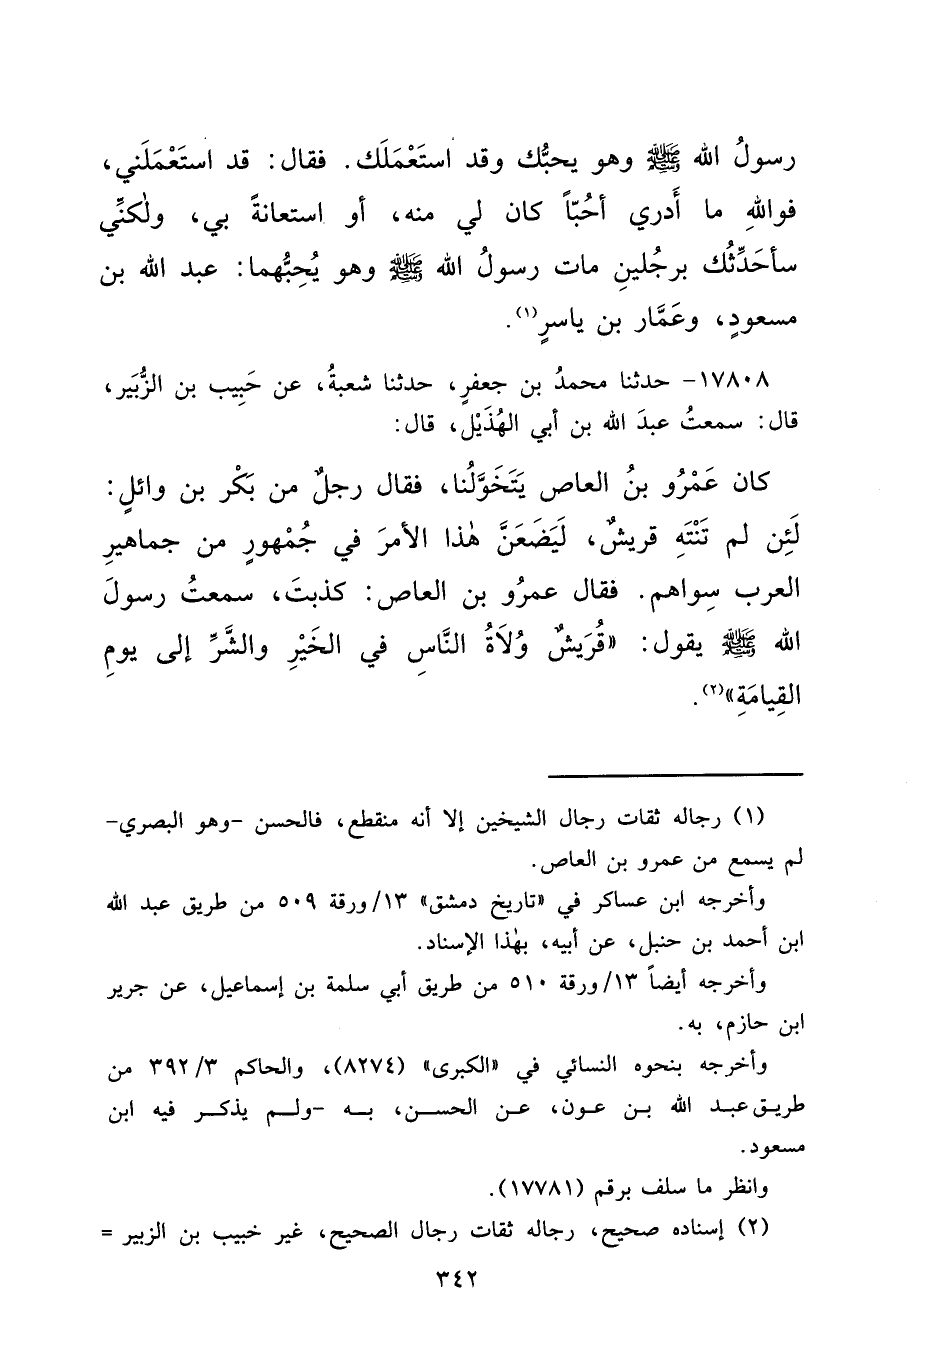 رسولُ الله ﷺ وهو يحبُّك وقد استَعْمَلَك. فقال: قد استَعْمَلَني،
فواللهِ ما أَدري أحُبّاً كان لي منه، أو استعانةً بي، ولٰكنِّي
سأحَدِّثُك برجُلينِ مات رسولُ الله ﷺ وهو يُحِبُّهما: عبد الله بن
مسعودٍ، وعَمَّار بن ياسرٍ(١).
١٧٨٠٨- حدثنا محمدُ بن جعفرٍ، حدثنا شعبةُ، عن خَبِيب بن الزُّبَير،
قال: سمعتُ عبدَ الله بن أبي الهُذَيْل، قال:
كان عَمْرُو بنُ العاص يَتَخَوَّلُنا، فقال رجلٌ من بَكْر بن وائلٍ:
لَئِن لم تَنْتَهِ قريشٌ، لَيَضَعَنَّ هٰذا الأمرَ في جُمْهورٍ من جماهيرِ
العرب سِواهم. فقال عمرُو بن العاص: كذبتَ، سمعتُ رسولَ
الله ﷺ يقول: «قُرَيشٌ وُلاَةُ النَّاسِ في الخَيْرِ والشَّرِّ إلى يومِ
القِيامَةِ»(٢).
(١) رجاله ثقات رجال الشيخين إلا أنه منقطع، فالحسن -وهو البصري-
لم يسمع من عمرو بن العاص.
وأخرجه ابن عساكر في «تاريخ دمشق» ١٣/ورقة ٥٠٩ من طريق عبد الله
ابن أحمد بن حنبل، عن أبيه، بهٰذا الإسناد.
وأخرجه أيضاً ١٣/ورقة ٥١٠ من طريق أبي سلمة بن إسماعيل، عن جرير
ابن حازم، به.
وأخرجه بنحوه النسائي في «الكبرى» (٨٢٧٤)، والحاكم ٣٩٢/٣ من
طريق عبد الله بن عون، عن الحسن، به -ولم يذكر فيه ابن
مسعود.
وانظر ما سلف برقم (١٧٧٨١).
(٢) إسناده صحيح، رجاله ثقات رجال الصحيح، غير خبيب بن الزبير =
٣٤٢